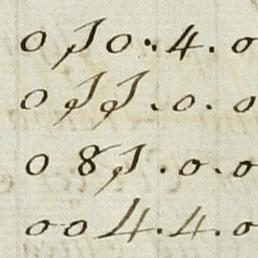 010..4.0
011.0.0
081.0.0
004.4.0